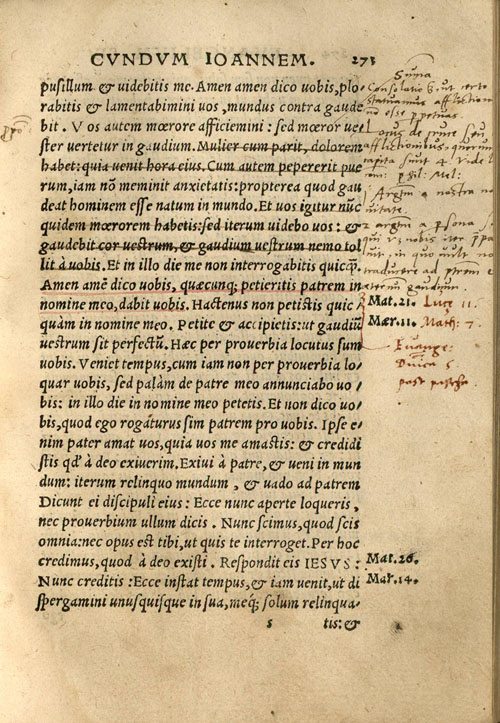 CVNDVM IOANNEM. 273
pusillum & uidebitis me. Amen amen dico uobis, plo-
rabitis & lamentabimini uos, mundus contra gaude
bit. Vos autem mœrore afficiemini: sed mœror ue-
ster vertetur in gaudium. Mulier cum parit, dolorem
habet: quia venit hora eius. Cum autem pepererit pue
rum, iam nõ meminit anxietatis: propterea quod gau
deat hominem esse natum in mundo. Et uos igitur nũc
quidem mœrorem habetis: sed iterum uidebo uos: &
gaudebit cor uestrum, & gaudium uestrum nemo tol
lit à uobis. Et in illo die me non interrogabitis quicq̃.
Amen amẽ dico uobis, quæcunq; petieritis patrem in
nomine meo, dabit uobis. Hactenus non petistis quic
quàm in nomine meo. Petite & accipietis: ut gaudiũ
uestrum sit perfectũ. Hæc per prouerbia locutus sum
uobis. Veniet tempus, cum iam non per prouerbia lo-
quar uobis, sed palàm de patre meo annunciabo uo-
bis: in illo die in nomine meo petetis. Et non dico uo-
bis, quod ego rogaturus sim patrem pro uobis. Ipse e-
nim pater amat uos, quia uos me amastis: & credidi
stis qd' à deo exiuerim. Exiui à patre, & ueni in mun
dum: iterum relinquo mundum, & uado ad patrem
Dicunt ei discipuli eius: Ecce nunc aperte loqueris,
nec prouerbium ullum dicis. Nunc scimus, quod scis
omnia: nec opus est tibi, ut quis te interroget. Per hoc
credimus, quod à deo existi. Respondit eis IESVS:
Nunc creditis: Ecce instat tempus, & iam venit, ut di
spergamini unusquisque in sua, meq́; solum relinqua-
s tis: &
Suma
Mat. 21. Luce 11
Mar. 11. Math: 7
Euange:
Dnica 5
post pascha
Mat. 26.
Mar. 14.